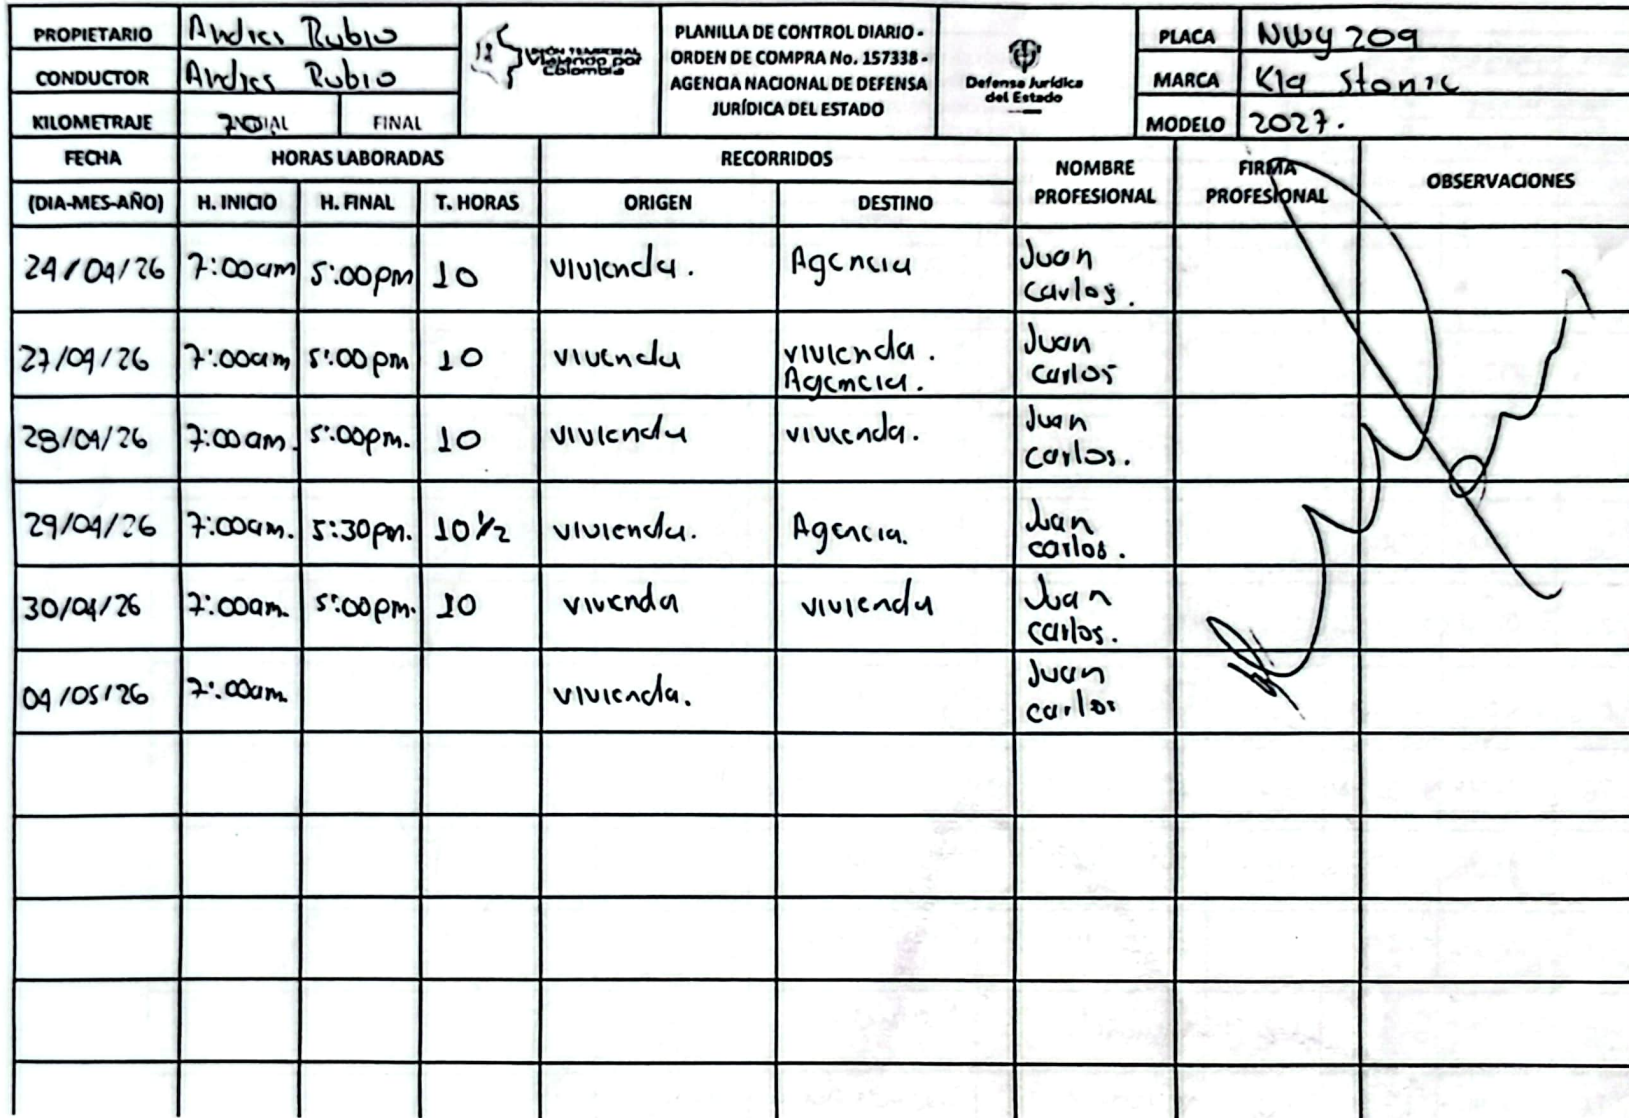 PROPIETARIO Andres Rubio
CONDUCTOR Andres Rubio
KILOMETRAJE INICIAL FINAL
UNIÓN TEMPORAL
Viajando por
Colombia
PLANILLA DE CONTROL DIARIO -
ORDEN DE COMPRA No. 157338 -
AGENCIA NACIONAL DE DEFENSA
JURÍDICA DEL ESTADO
Defensa Jurídica
del Estado
PLACA NWY 209
MARCA Kia Stonic
MODELO 2027.
FECHA
(DIA-MES-AÑO)
HORAS LABORADAS
H. INICIO H. FINAL T. HORAS
RECORRIDOS
ORIGEN DESTINO
NOMBRE
PROFESIONAL
FIRMA
PROFESIONAL
OBSERVACIONES
24/04/26 7:00am 5:00pm 10 vivienda. Agencia Juan
carlos.
27/04/26 7:00am 5:00pm 10 vivienda vivienda.
Agencia. Juan
carlos
28/04/26 7:00am. 5:00pm. 10 vivienda vivienda. Juan
carlos.
29/04/26 7:00am. 5:30pm. 10 1/2 vivienda. Agencia. Juan
carlos.
30/04/26 7:00am. 5:00pm. 10 vivenda vivienda Juan
carlos.
04/05/26 7:00am. vivienda. Juan
carlos